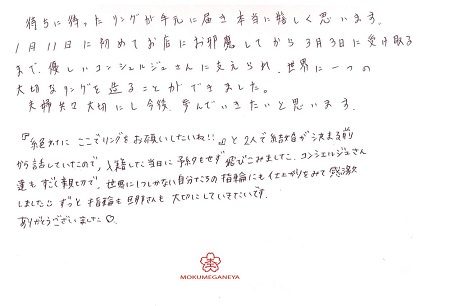 待ちに待ったリングが手元に届き本当に嬉しく思います。
1月11日に初めてお店にお邪魔してから3月3日に受け取る
まで、優しいコンシェルジュさんに支えられ、世界に一つの
大切なリングを造ることができました。
夫婦共々大切にし今後、歩んでいきたいと思います。
『絶対にここでリングをお願いしたいね!!』と2人で結婚が決まる前
から話していたので、入籍した当日に予約もせず飛びこみました。コンシェルジュさん
達もすごく親切で、世界に1つしかない自分たちの指輪にも仕上がりをみて感激
しました。ずっと指輪も旦那さんも大切にしていきたいです。
ありがとうございました♡
MOKUMEGANEYA